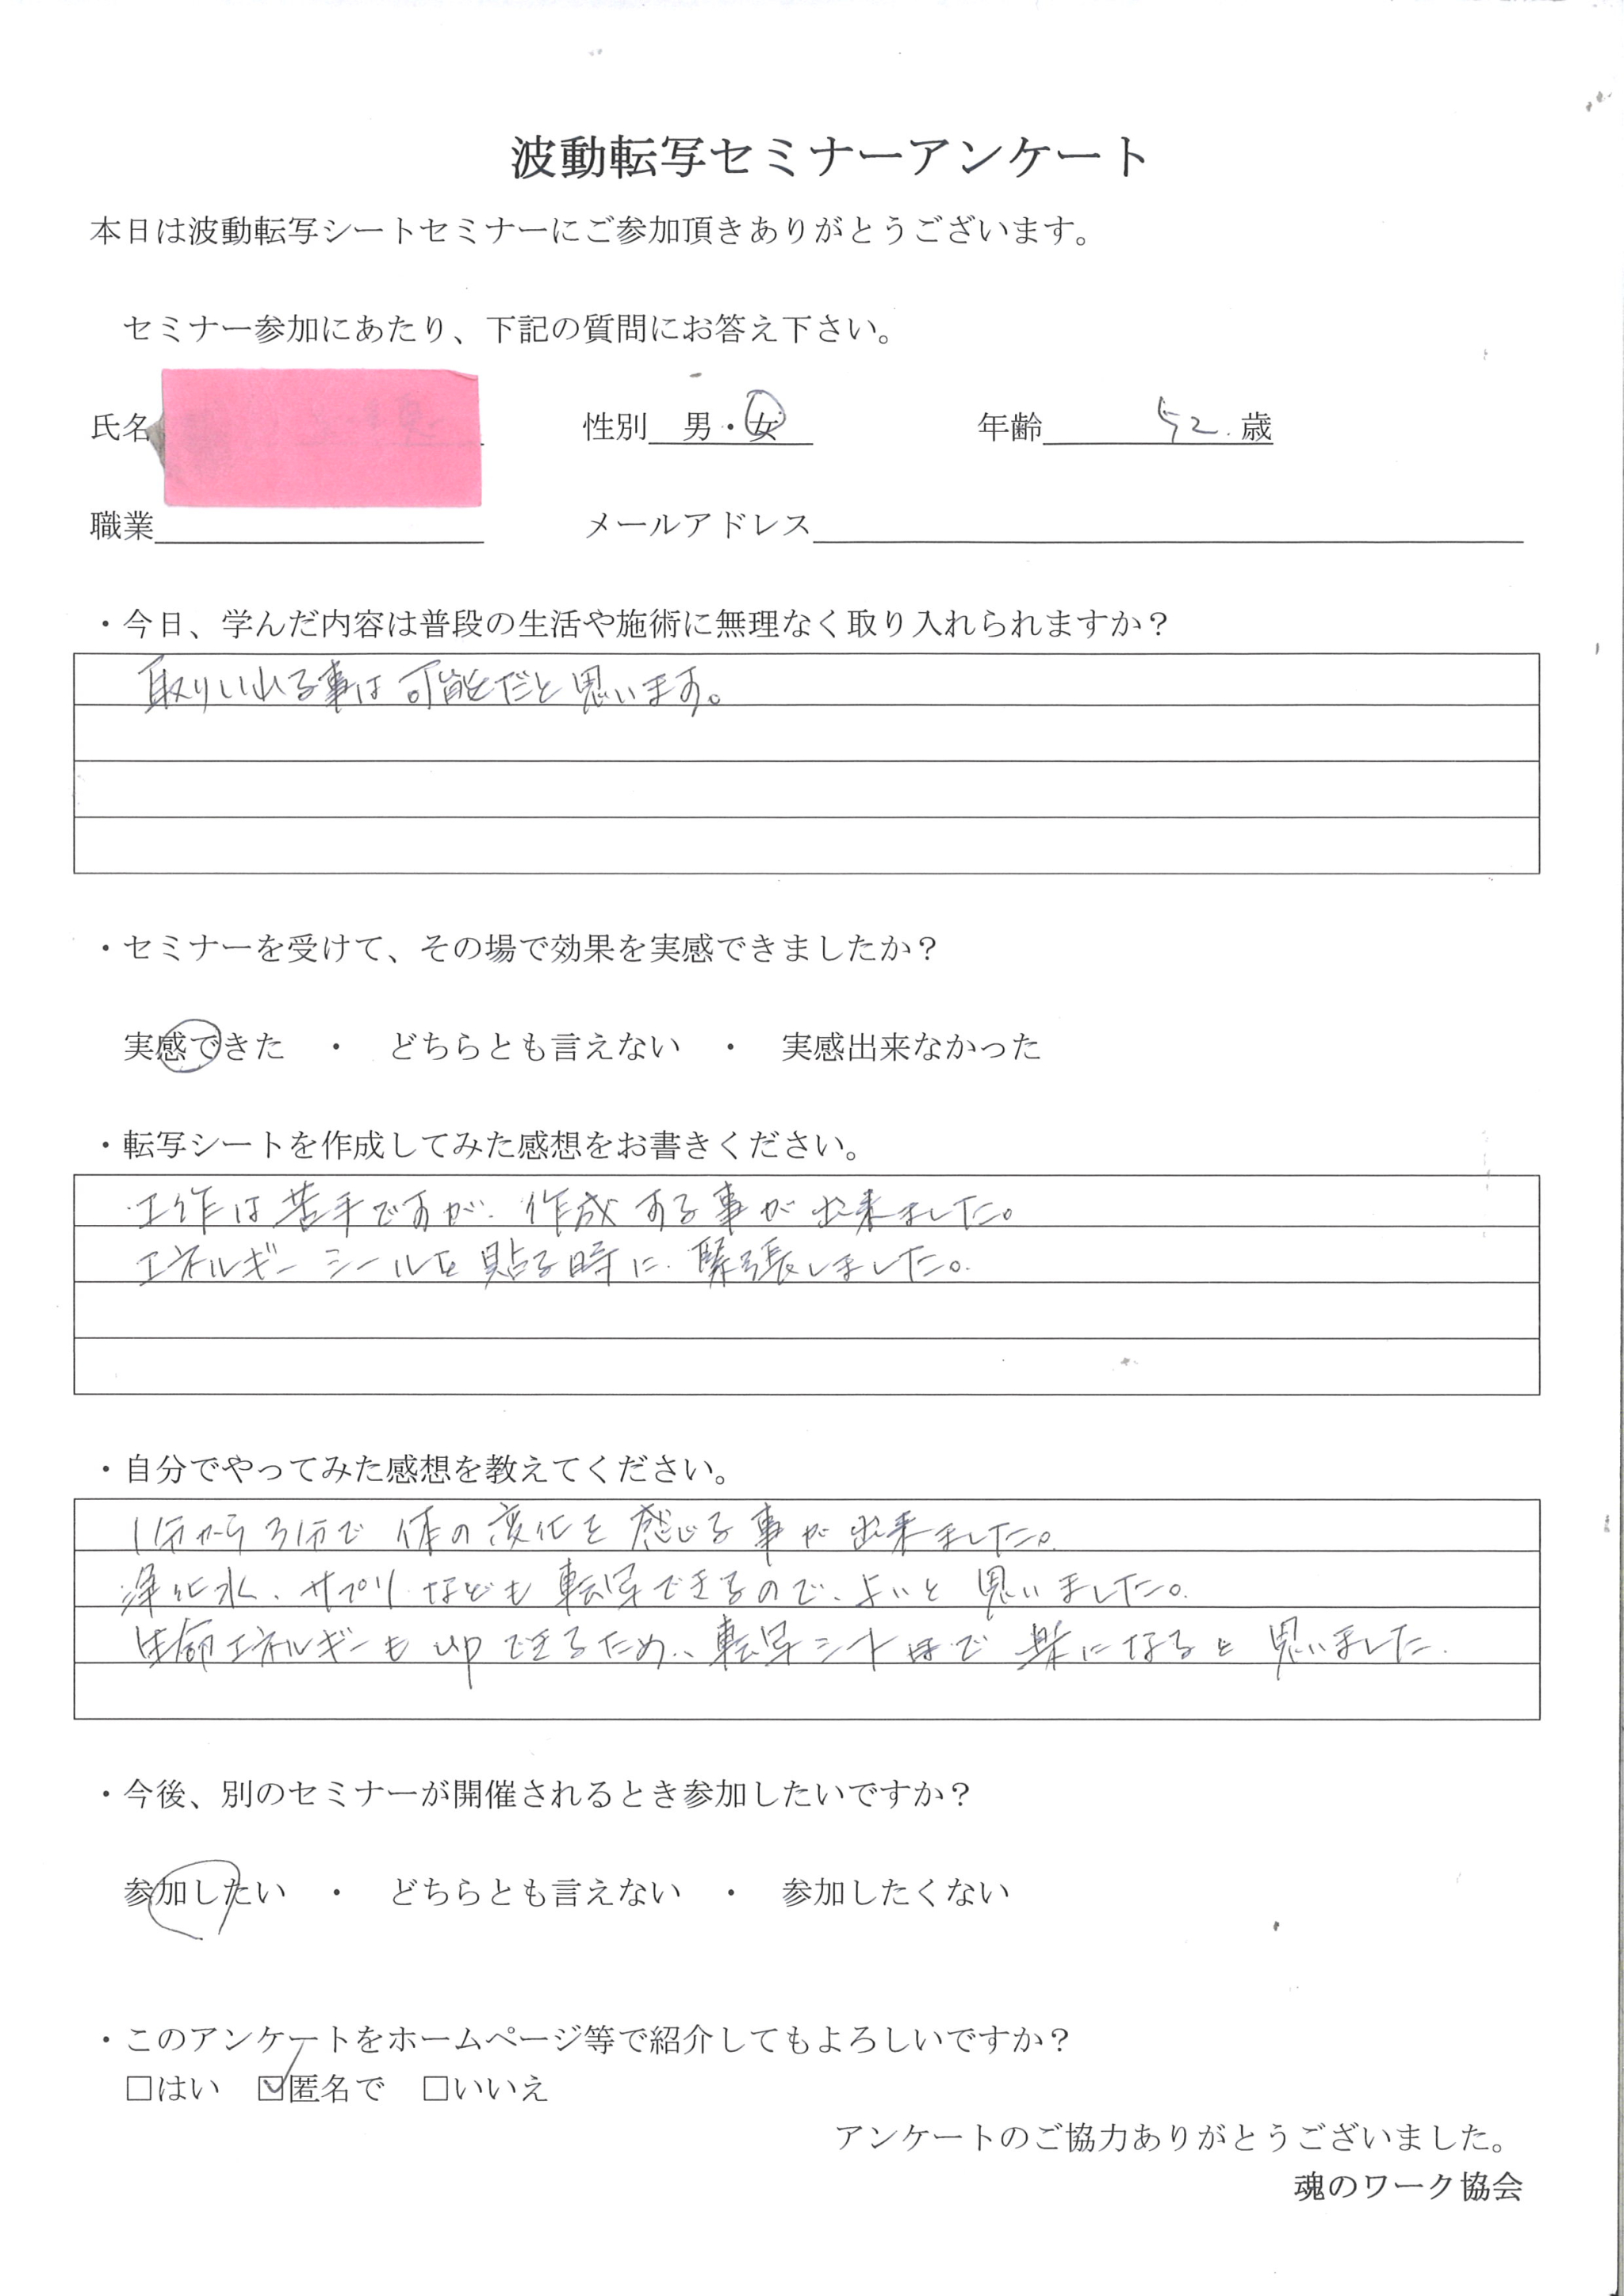 波動転写セミナーアンケート
本日は波動転写シートセミナーにご参加頂きありがとうございます。
セミナー参加にあたり、下記の質問にお答え下さい。
氏名 性別 男・女 年齢 52.歳
職業 メールアドレス
・今日、学んだ内容は普段の生活や施術に無理なく取り入れられますか？
取りいれる事は可能だと思います。
・セミナーを受けて、その場で効果を実感できましたか？
実感できた ・ どちらとも言えない ・ 実感出来なかった
・転写シートを作成してみた感想をお書きください。
工作は苦手ですが、作成する事が出来ました。
エネルギーシールを貼る時に、緊張しました。
・自分でやってみた感想を教えてください。
1分から3分で体の変化を感じる事が出来ました。
浄化水、サプリなども転写できるので、よいと思いました。
生命エネルギーもupできるため、転写シート で楽になると思いました.
・今後、別のセミナーが開催されるとき参加したいですか？
参加したい ・ どちらとも言えない ・ 参加したくない
・このアンケートをホームページ等で紹介してもよろしいですか？
□はい ☑匿名で □いいえ
アンケートのご協力ありがとうございました。
魂のワーク協会